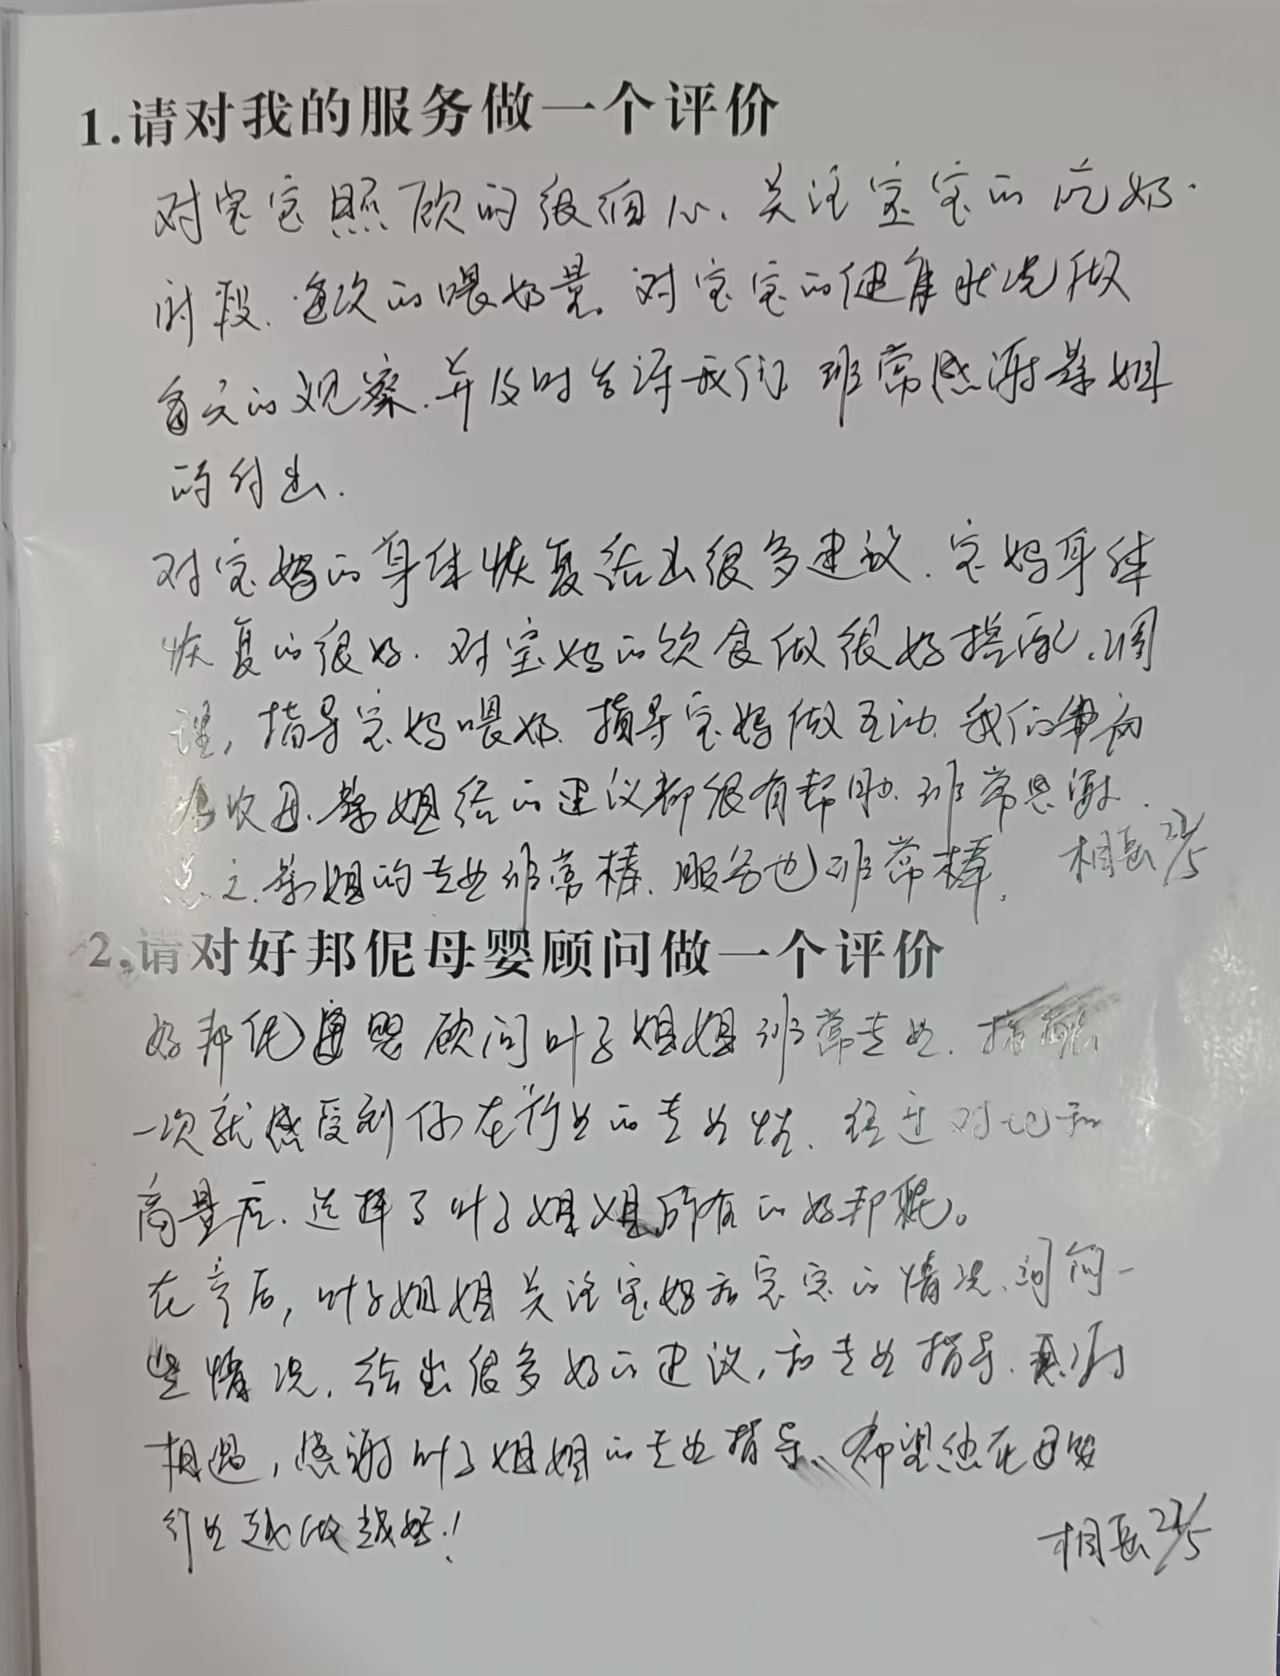 1.请对我的服务做一个评价
对宝宝照顾的很细心、关注宝宝的吃奶.
时段.每次的喂奶量。对宝宝的健康状况做
每天的观察.并及时告诉我们 非常感谢蔡姐
的付出.
对宝妈的身体恢复给出很多建议.宝妈身体
恢复的很好.对宝妈的饮食做很好搭配,调
理,指导宝妈喂奶.指导宝妈做互动.我们
姐给的建议都很有帮助.非常感谢.
之.姐的专业非常棒.服务也非常棒.
2.请对好邦伲母婴顾问做一个评价
好邦伲母婴顾问叶子姐姐非常专业.
一次就感受到你在行业的专业性.经过对比和
商量后.选择了叶子姐姐所在的好邦伲。
在产后,叶子姐姐关注宝妈和宝宝的情况.询问一
些情况.给出很多好的建议,和专业指导.感谢
相遇,感谢叶子姐姐的专业指导、希望您在母婴
行业越做越好!